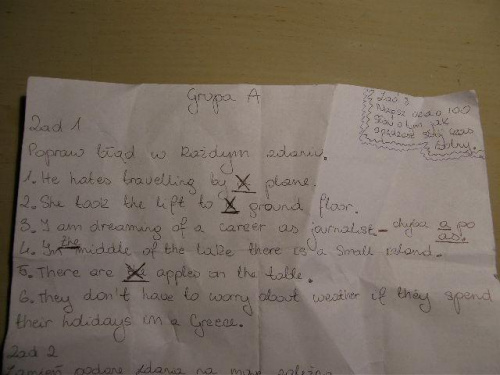 Grupa A
Zad 3
Napisz
Zad 1
Popraw błąd w każdym zdaniu.
1. He hates travelling by X plane.
2. She took the lift to X ground floor.
3. I am dreaming of a career as journalist - chyba a po as.
4. In the middle of the lake there is a small island.
5. There are X apples on the table.
6. They don't have to worry about weather if they spend
their holidays in a Greece.
Zad 2
Zamień podane zdania na